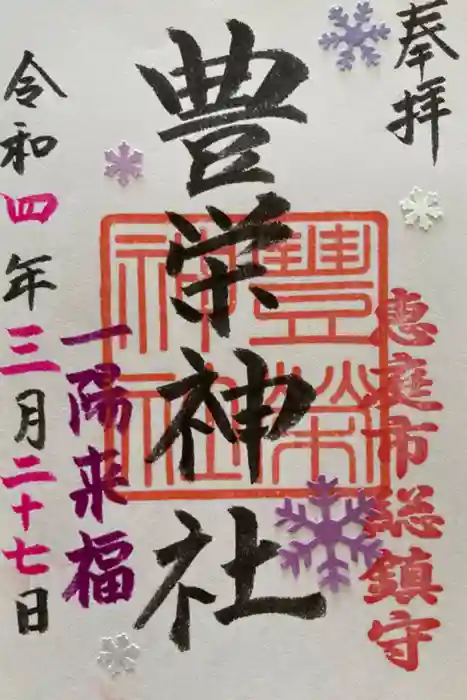 奉拝
恵庭市総鎮守
豊栄神社
豊榮
神社
一陽来福
令和四年三月二十七日